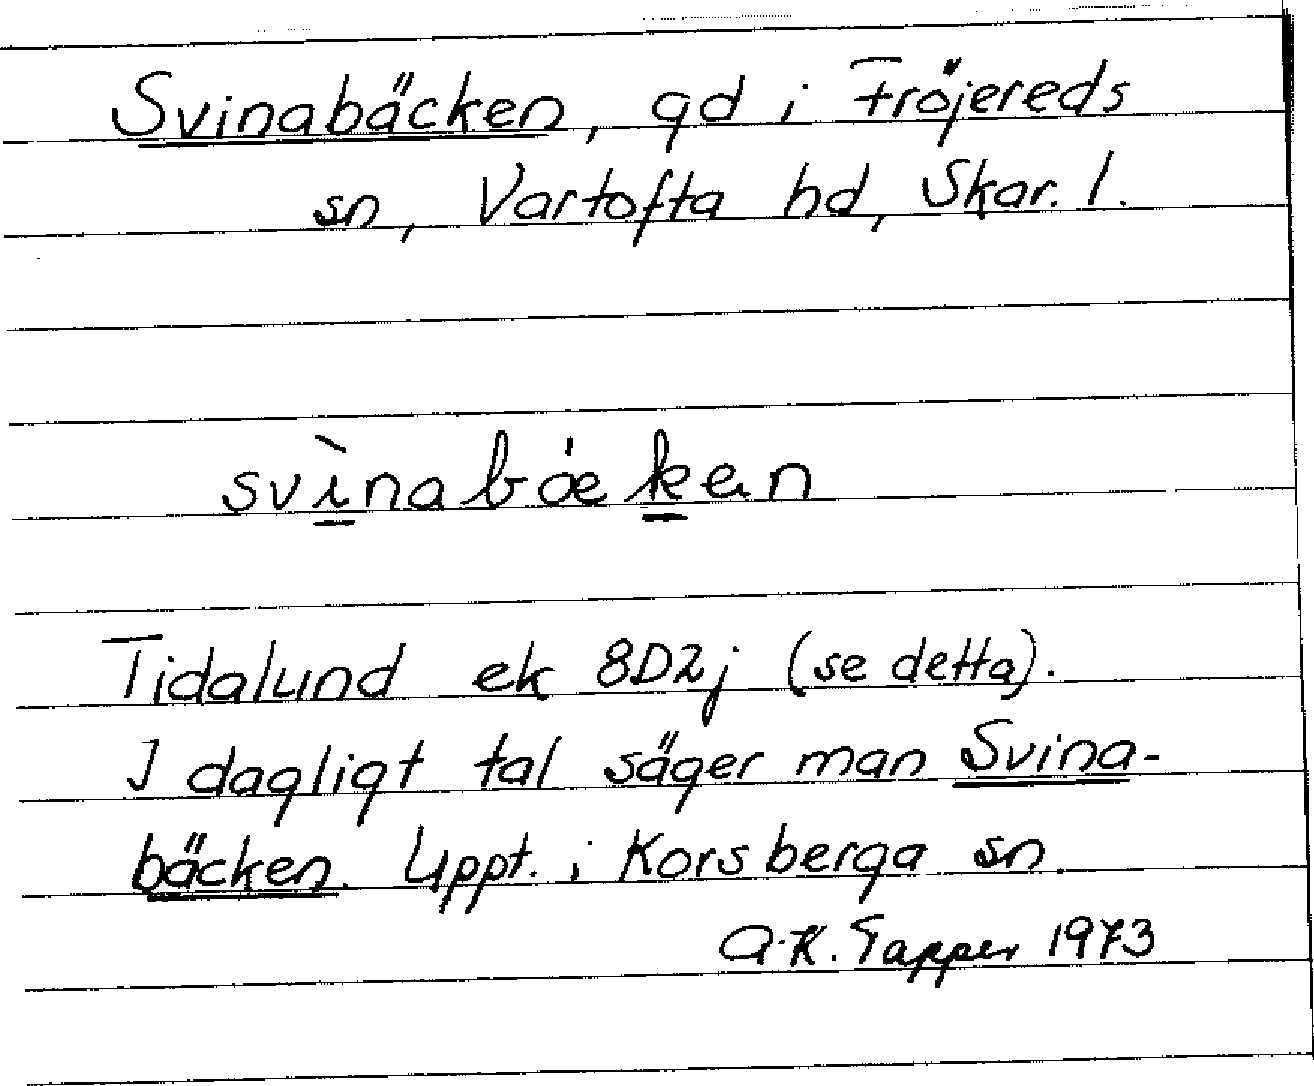 Svinabäcken, gd i Fröjereds
sn, Vartofta hd, Skar. l.
svìnabǽken
Tidalund ek 8D2j (se detta).
I dagligt tal säger man Svina-
bäcken. Uppt. i Korsberga sn
A.K. Tapper 1973